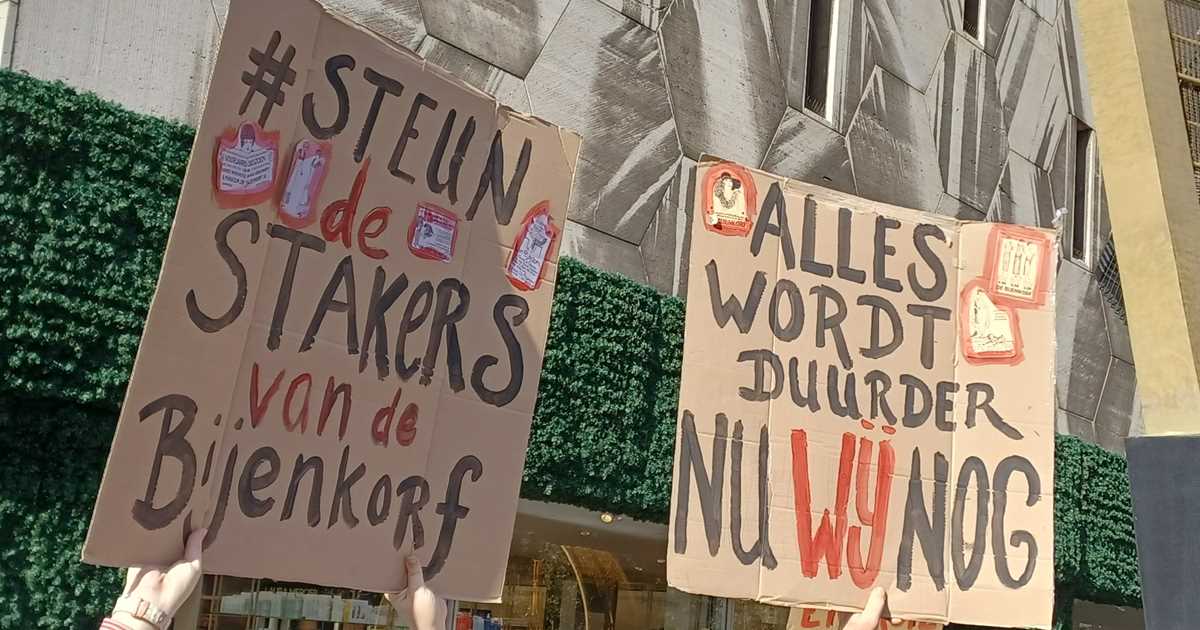 #STEUN
de
STAKERS
van de
Bijenkorf
ALLES
WORDT
DUURDER
NU WIJ NOG